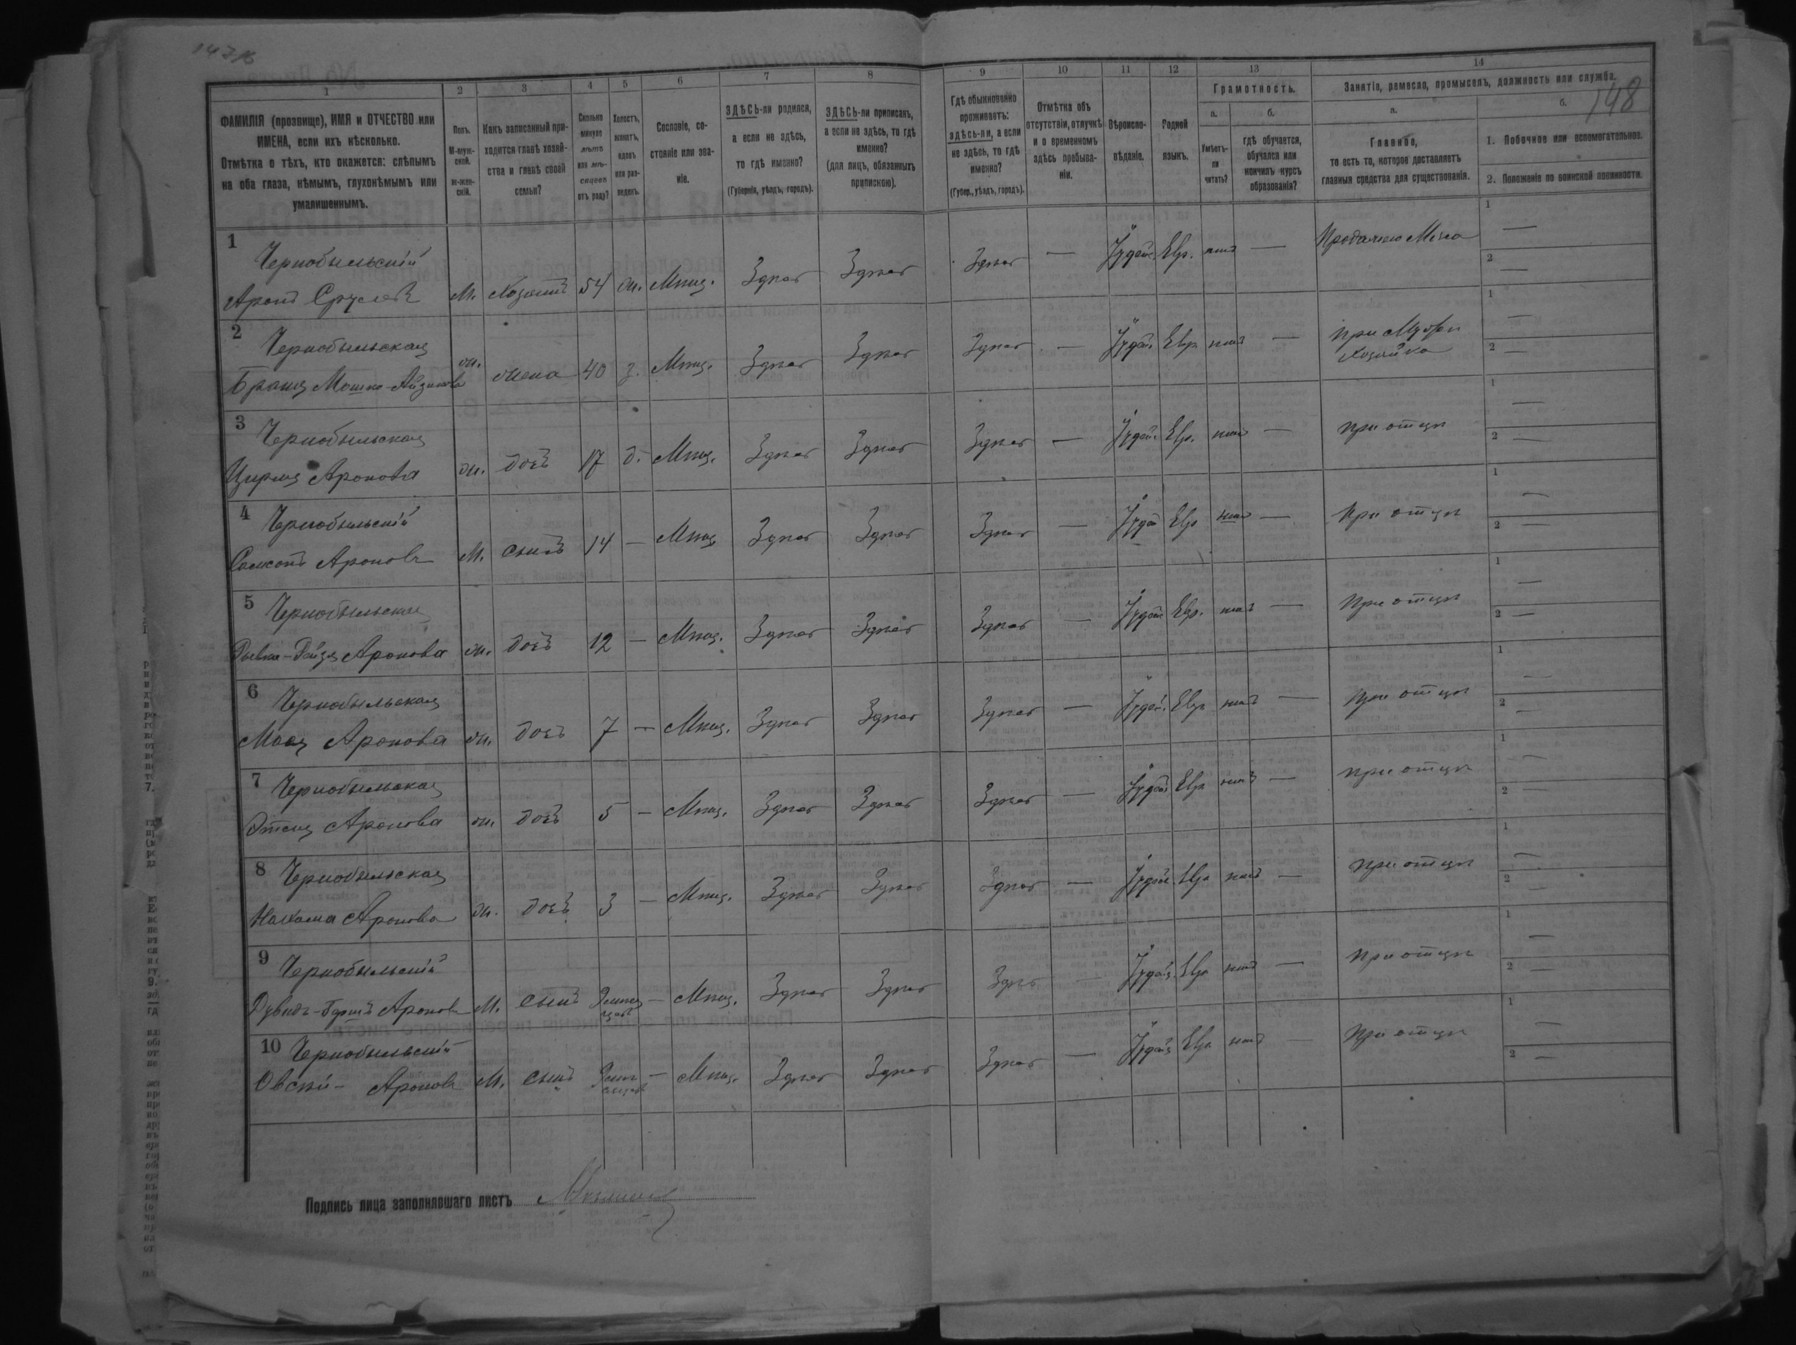 148
1 2 3 4 5 6 7 8 9 10 11 12 13 14
ФАМИЛІЯ (прозвище), ИМЯ и ОТЧЕСТВО или
ИМЕНА, если ихъ нѣсколько.
Отмѣтка о тѣхъ, кто окажется: слѣпымъ
на оба глаза, нѣмымъ, глухонѣмымъ или
умалишеннымъ.
Полъ.
М-муж-
ской.
Ж-жен-
скій.
Какъ записанный при-
ходится главѣ хозяй-
ства и главѣ своей
семьи?
Сколько
минуло
лѣтъ
или мѣ-
сяцевъ
отъ роду?
Холостъ,
женатъ,
вдовъ
или раз-
веденъ.
Сословіе, со-
стояніе или зва-
ніе.
ЗДѢСЬ-ли родился,
а если не здѣсь,
то гдѣ именно?
(Губернія, уѣздъ, городъ).
ЗДѢСЬ-ли приписанъ,
а если не здѣсь, то гдѣ
именно?
(для лицъ, обязанныхъ
припискою).
Гдѣ обыкновенно
проживаетъ:
здѣсь-ли, а если
не здѣсь, то гдѣ
именно?
(Губер., уѣздъ, городъ).
Отмѣтка объ
отсутствіи, отлучкѣ
и о временномъ
здѣсь пребыва-
ніи.
Вѣроиспо-
вѣданіе.
Родной
языкъ.
Грамотность.
а.
Умѣетъ-
ли
читать?
б.
гдѣ обучается,
обучался или
кончилъ курсъ
образованія?
Занятіе, ремесло, промыселъ, должность или служба.
а.
Главное,
то есть то, которое доставляетъ
главныя средства для существованія.
б.
1. Побочное или вспомогательное.
2. Положеніе по воинской повинности.
1 Чернобыльскій
Аронъ Сруслевъ М. хозяинъ 54 ж. Мѣщ. Здѣсь Здѣсь Здѣсь — Іудей. Евр. нѣтъ — Продажею Мяса 1 — 2 —
2 Чернобыльская
Браня Мошко-Айзикова ж. жена 40 з. Мѣщ. Здѣсь Здѣсь Здѣсь — Іудей. Евр. нѣтъ — при Мужѣ
Хозяйка 1 — 2 —
3 Чернобыльская
Цирля Аронова ж. дочь 17 д. Мѣщ. Здѣсь Здѣсь Здѣсь — Іудей. Евр. нѣтъ — при отцѣ 1 — 2 —
4 Чернобыльскій
Самсонъ Ароновъ М. сынъ 14 — Мѣщ. Здѣсь Здѣсь Здѣсь — Іудей Евр. нѣтъ — При отцѣ 1 — 2 —
5 Чернобыльская
Аронова ж. дочь 12 — Мѣщ. Здѣсь Здѣсь Здѣсь — Іудей Евр. нѣтъ — При отцѣ 1 — 2 —
6 Чернобыльская
Аронова ж. дочь 7 — Мѣщ. Здѣсь Здѣсь Здѣсь — Іудей. Евр. нѣтъ — При отцѣ 1 — 2 —
7 Чернобыльская
Аронова ж. дочь 5 — Мѣщ. Здѣсь Здѣсь Здѣсь — Іудей Евр. нѣтъ — При отцѣ 1 — 2 —
8 Чернобыльская
Нахама Аронова ж. дочь 3 — Мѣщ. Здѣсь Здѣсь Здѣсь — Іудей Евр. нѣтъ — При отцѣ 1 — 2 —
9 Чернобыльскій
Ароновъ М. сынъ — Мѣщ. Здѣсь Здѣсь Здѣсь — Іудей Евр. нѣтъ — При отцѣ 1 — 2 —
10 Чернобыльскій
Овсѣй — Ароновъ М. сынъ — Мѣщ. Здѣсь Здѣсь Здѣсь — Іудей Евр. нѣтъ — При отцѣ 1 — 2 —
Подпись лица заполнявшаго листъ